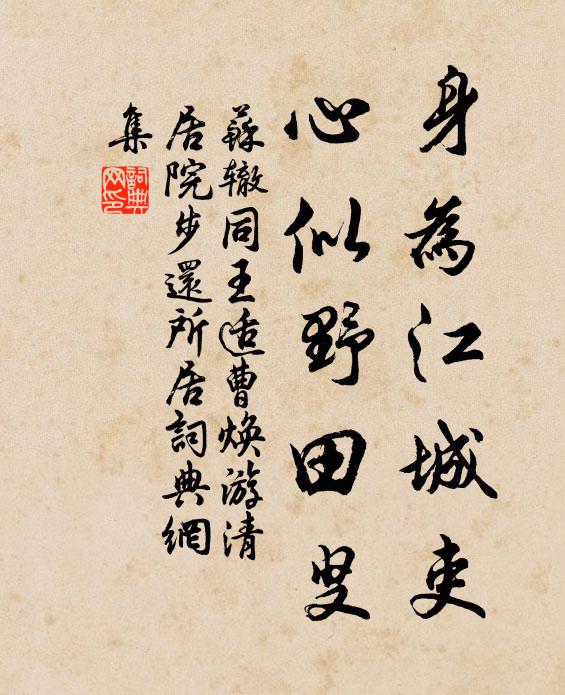 身為江城吏
心似野田叟
蘇辙同王适曹煥游清
居院步還所居詞典網
集
詞典
网印